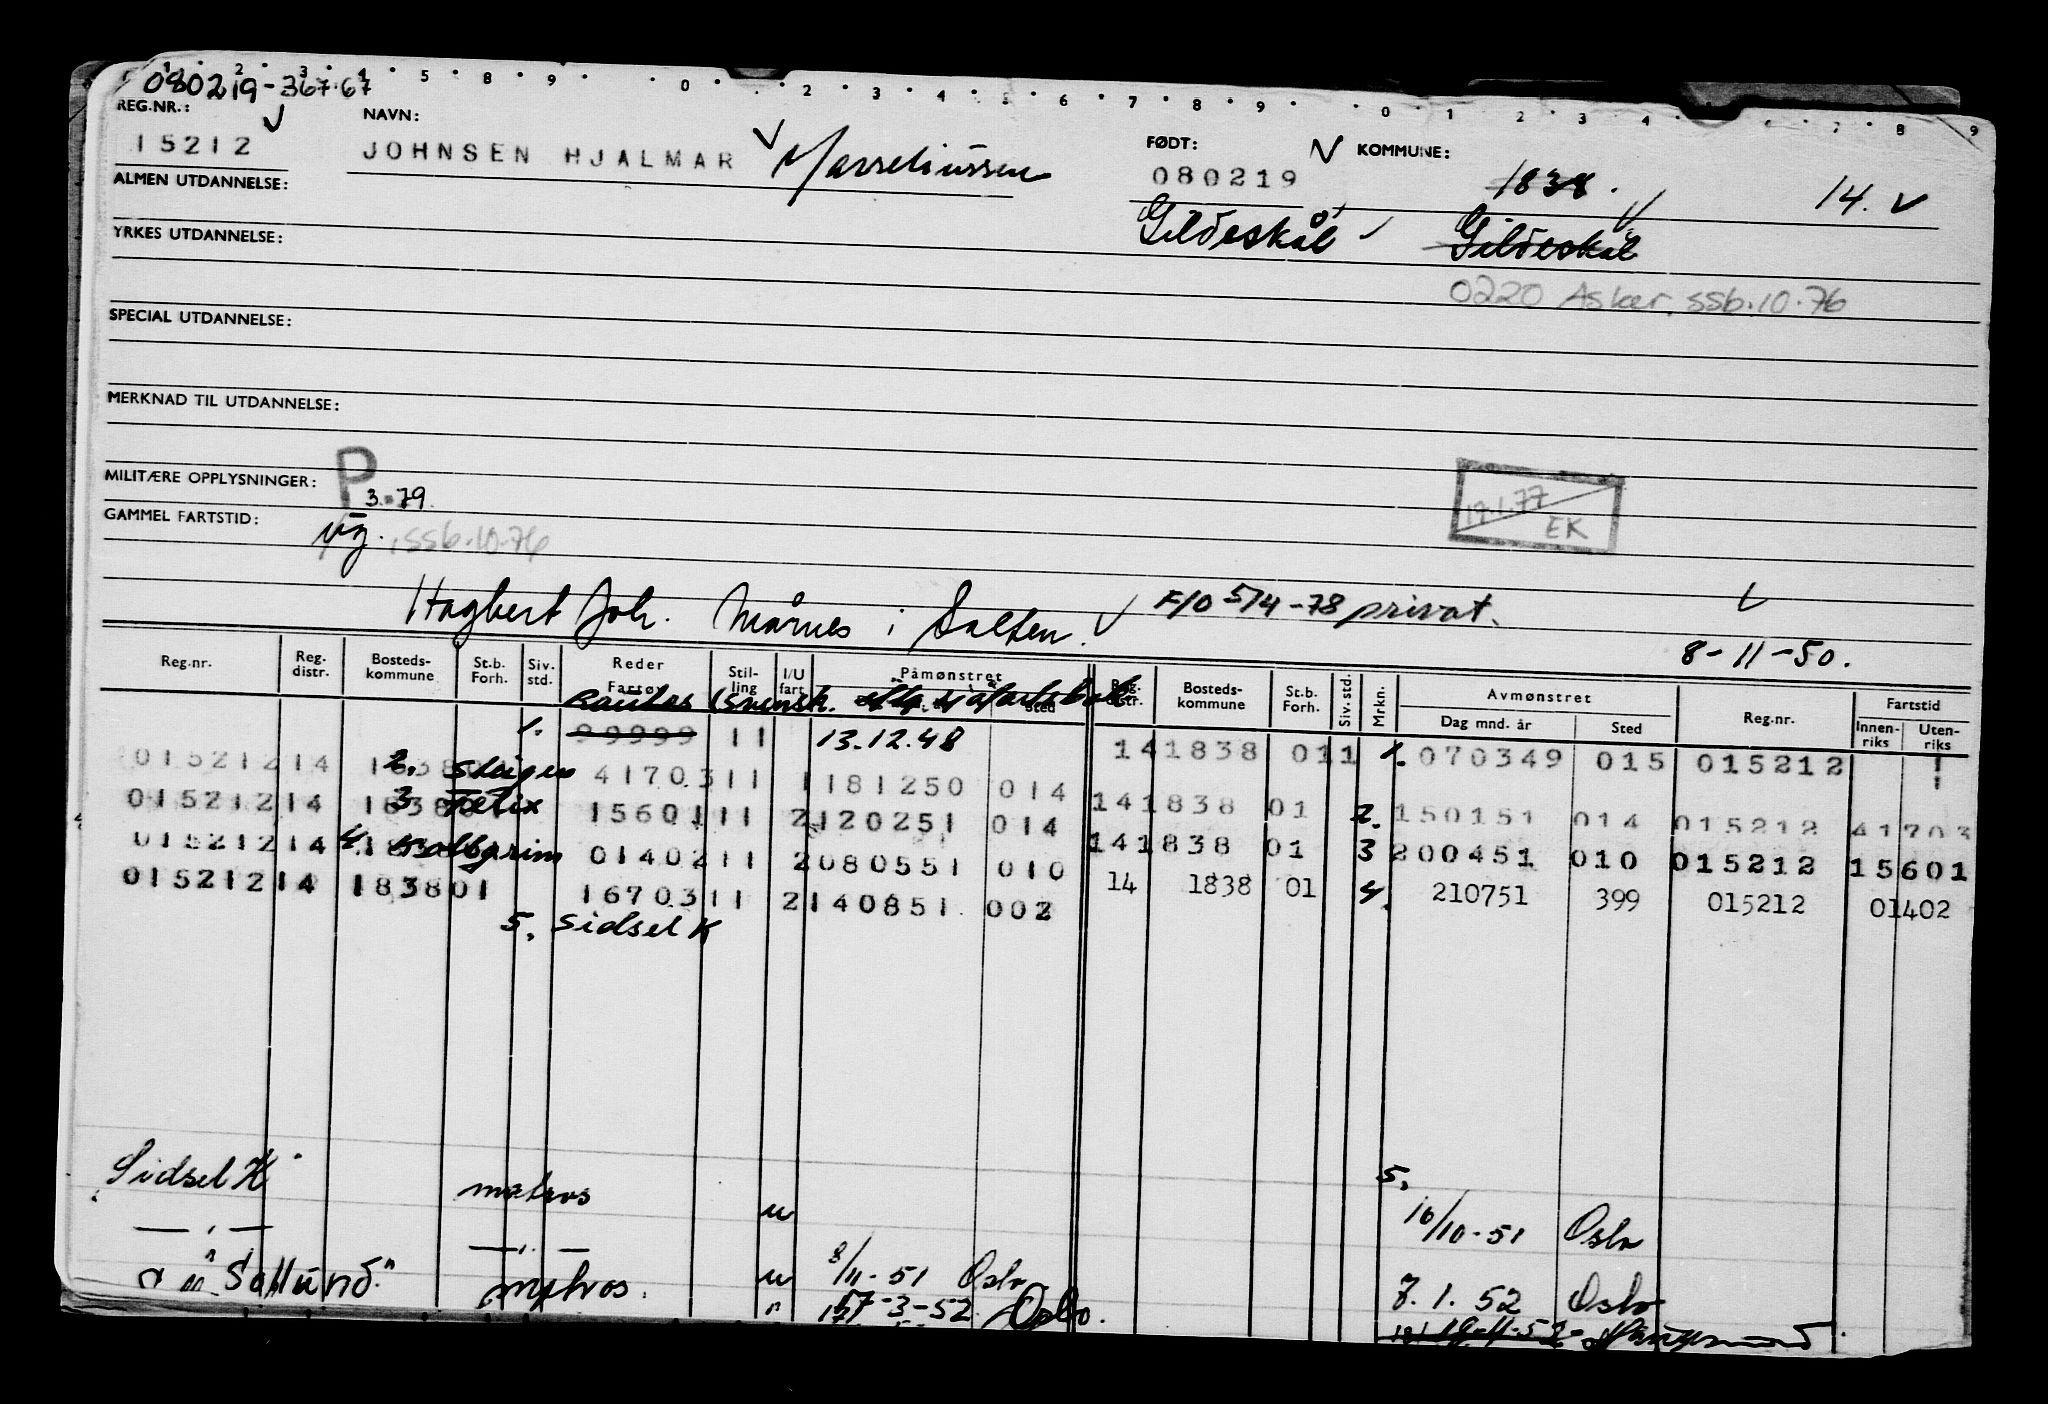 080219-367.67
REG.NR.:
15212
NAVN:
JOHNSEN HJALMAR Marseliussen
FØDT:
080219
Gildeskål
KOMMUNE:
1838. 14.
Gildeskål
0220 Asker. ssb.10.76
ALMEN UTDANNELSE:
YRKES UTDANNELSE:
SPECIAL UTDANNELSE:
MERKNAD TIL UTDANNELSE:
MILITÆRE OPPLYSNINGER:
P 3.79.
17.1.77
EK
GAMMEL FARTSTID:
ssb.10.76
Hagbert Joh. Mårnes i Salten. F/O 5/4-78 privat.
8-11-50.
Reg.nr. Reg. distr. Bosteds-kommune St.b. Forh. Siv. std. Reder Fartøy Stil-ling I/U fart Påmønstret Sted Reg. distr. Bosteds-kommune St.b. Forh. Siv. std. Mrkn. Avmønstret Dag mnd. år Sted Reg.nr. Fartstid Innen-riks Uten-riks
1. 99999 11 13.12.48 14 1838 011 1. 070349 015 015212
015212 14 183801 2. Steigen 41703 11 1 181250 014 14 1838 01 2. 150151 014 015212 41703
015212 14 183801 3. Felix 15601 11 2 120251 014 14 1838 01 3 200451 010 015212 15601
015212 14 183801 4. 01402 11 2 080551 010 14 1838 01 4. 210751 399 015212 01402
015212 14 183801 16703 11 2 140851 002
5. Sidsel K
5.
Sidsel K matros u 10/10-51 Oslo
— " — — " — u 8/11-51 Oslo 7.1.52 Oslo
matros. " 17-3-52 Oslo.